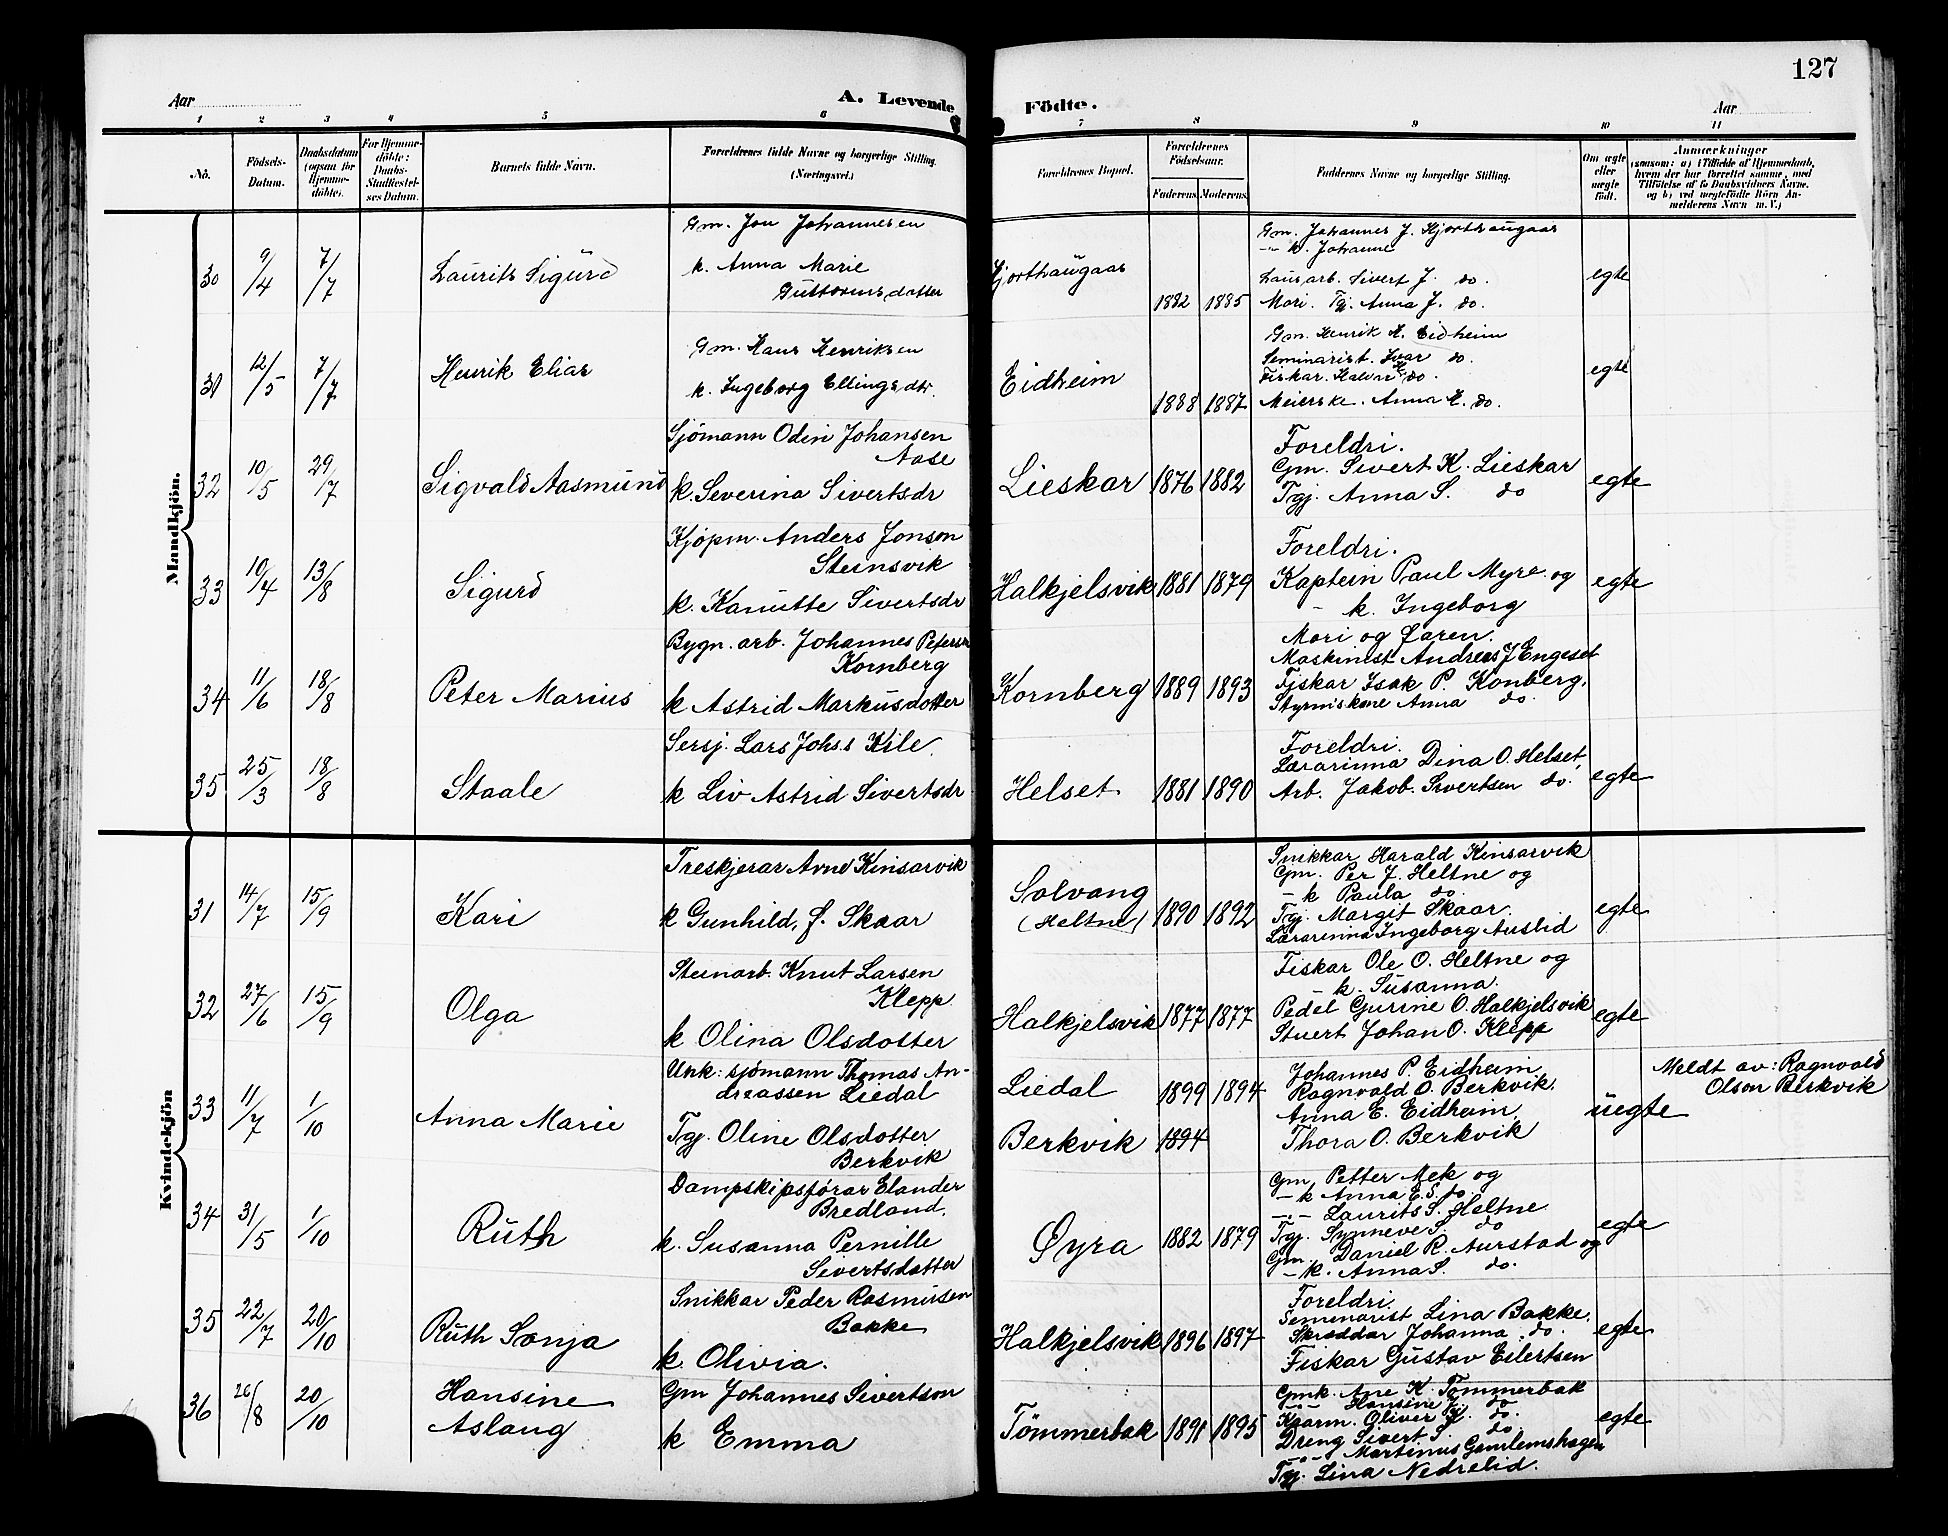 127
Aar
A. Levende
Födte.
Aar
1 2 3 4 5 6 7 8 9 10 11
No.
Födsels-
Datum.
Daabsdatum
(ogsaa for
Hjemme-
döbte).
For Hjemme-
döbte:
Daabs-
Stadfæstel-
ses Datum.
Barnets fulde Navn.
Forældrenes fulde Navne og borgerlige Stilling.
(Næringsvei.)
Forældrenes Bopæl.
Forældrenes
Födselsaar.
Faderens. Moderens.
Faddernes Navne og borgerlige Stilling.
Om ægte
eller
uægte
født.
Anmærkninger
(saasom: a) i Tilfælde af Hjemmedaab,
hvem der har forrettet samme, med
Tilföielse af to Daabsvidners Navne,
og b) ved uægtefödte Börn An-
melderens Navn m. V.)
Mandkjön.
30 9/4 7/7 Laurits Sigurd
Gm. Jon Johannesen
k. Anna Marie
Guttormsdotter
Hjorthaugaas 1882 1885
Gm. Johannes J. Hjorthaugaas
-"- k. Johanne
Lausarb. Sivert J. do.
Mori. Tgj. Anna J. do.
egte
31 12/5 7/7 Henrik Elias
Gm. Hans Henriksen
k. Ingeborg Ellingsdtr.
Eidheim 1888 1887
Gm. Henrik H. Eidheim
Seminarist. Ivar do.
Fiskar. Halvne H. do.
Meierske. Anna H. do.
egte
32 10/5 29/7 Sigvald Aasmund
Sjömann Odin Johansen
Aase
k. Severina Sivertsdr
Lieskar 1876 1882
Foreldri.
Gm. Sivert K. Lieskar
Tgj. Anna S. do
egte
33 10/4 13/8 Sigurd
Kjöpm. Anders Jonson
Steinsvik
k. Kanutte Sivertsdr
Halkjelsvik 1881 1879
Foreldri.
Kaptein Paul Myre og
- k. Ingeborg
egte
34 11/6 18/8 Peter Marius
Bygn. arb. Johannes Petersn
Kornberg
k Astrid Markusdotter
Kornberg 1889 1893
Mori og faren.
Maskinist Andreas J Engeset
Fiskar Isak P. Konberg,
Styrmiskone Anna do
egte
35 25/3 18/8 Staale
Sersj. Lars Johs.s Kile
k Liv Astrid Sivertsdr
Helset 1881 1890
Foreldri.
Lærarinna Dina O. Helset,
Arb. Jakob Sivertsen do.
egte
Kvindekjön
31 14/7 15/9 Kari
Treskjerar Arne Kinsarvik
k Gunhild, f. Skaar
Solvang
(Heltne) 1890 1892
Snikkar Harald Kinsarvik
Gm. Per J. Heltne og
- k Paula do
Tgj. Margit Skaar.
Lærarinna Ingeborg Auslid
egte
32 27/6 15/9 Olga
Steinarb. Knut Larsen
Klepp
k Olina Olsdotter
Halkjelsvik 1877 1877
Fiskar Ole O. Heltne og
- k. Susanna.
Pedel Gurine O. Halkjelsvik
Stuert Johan O. Klepp
egte
33 11/7 1/10 Anna Marie
Unk: sjömann Thomas An-
dreassen Liedal
Tgj. Oline Olsdotter
Berkvik
Liedal 1899 1894
Berkvik 1894
Johannes P. Eidheim
Ragnvald O. Berkvik.
Anna E. Eidheim,
Thora O. Berkvik
uegte
Meldt av: Ragnvald
Olson Berkvik
34 31/5 1/10 Ruth
Dampskipsförar Elander
Bredland.
k. Susanna Pernille
Sivertsdotter
Øyra 1882 1879
Gm. Petter Aek og
- k Anna E.S. do.
-"- Laurits S. Heltne
Tgj. Synneve S. do
Gm. Daniel R. Aurstad og
- k. Anna S. do.
egte
35 22/7 20/10 Ruth Sonja
Snikkar Peder Rasmussen
Bakke
k. Olivia.
Halkjelsvik 1896 1897
Foreldri
Seminarist Lina Bakke.
Skræddar Johanna do.
Fiskar Gustav Eilertsen
egte
36 26/8 20/10 Hansine
Aslaug
Gm Johannes Sivertson
k Emma
Tömmerbak 1891 1895
Gmk. Ane K. Tömmerbak
-"- Hansine J. do
Kaarm. Oliver do.
Dreng Sivert S. do
-"- Martinus Gamlemshagen
Tgj. Lina Nedrelid.
egte